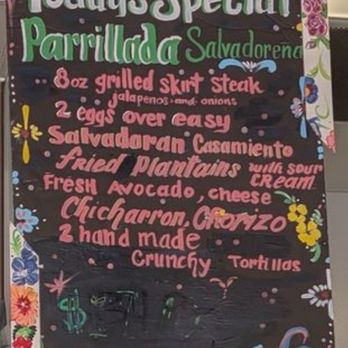 Todays Special
Parrillada Salvadoreña
8oz grilled skirt steak
jalapenos and onions
2 eggs over easy
Salvadoran Casamiento
fried Plantains with sour
CREAM
FRESH Avocado, cheese
Chicharron, CHORIZO
2 hand made
Crunchy Tortillas
$